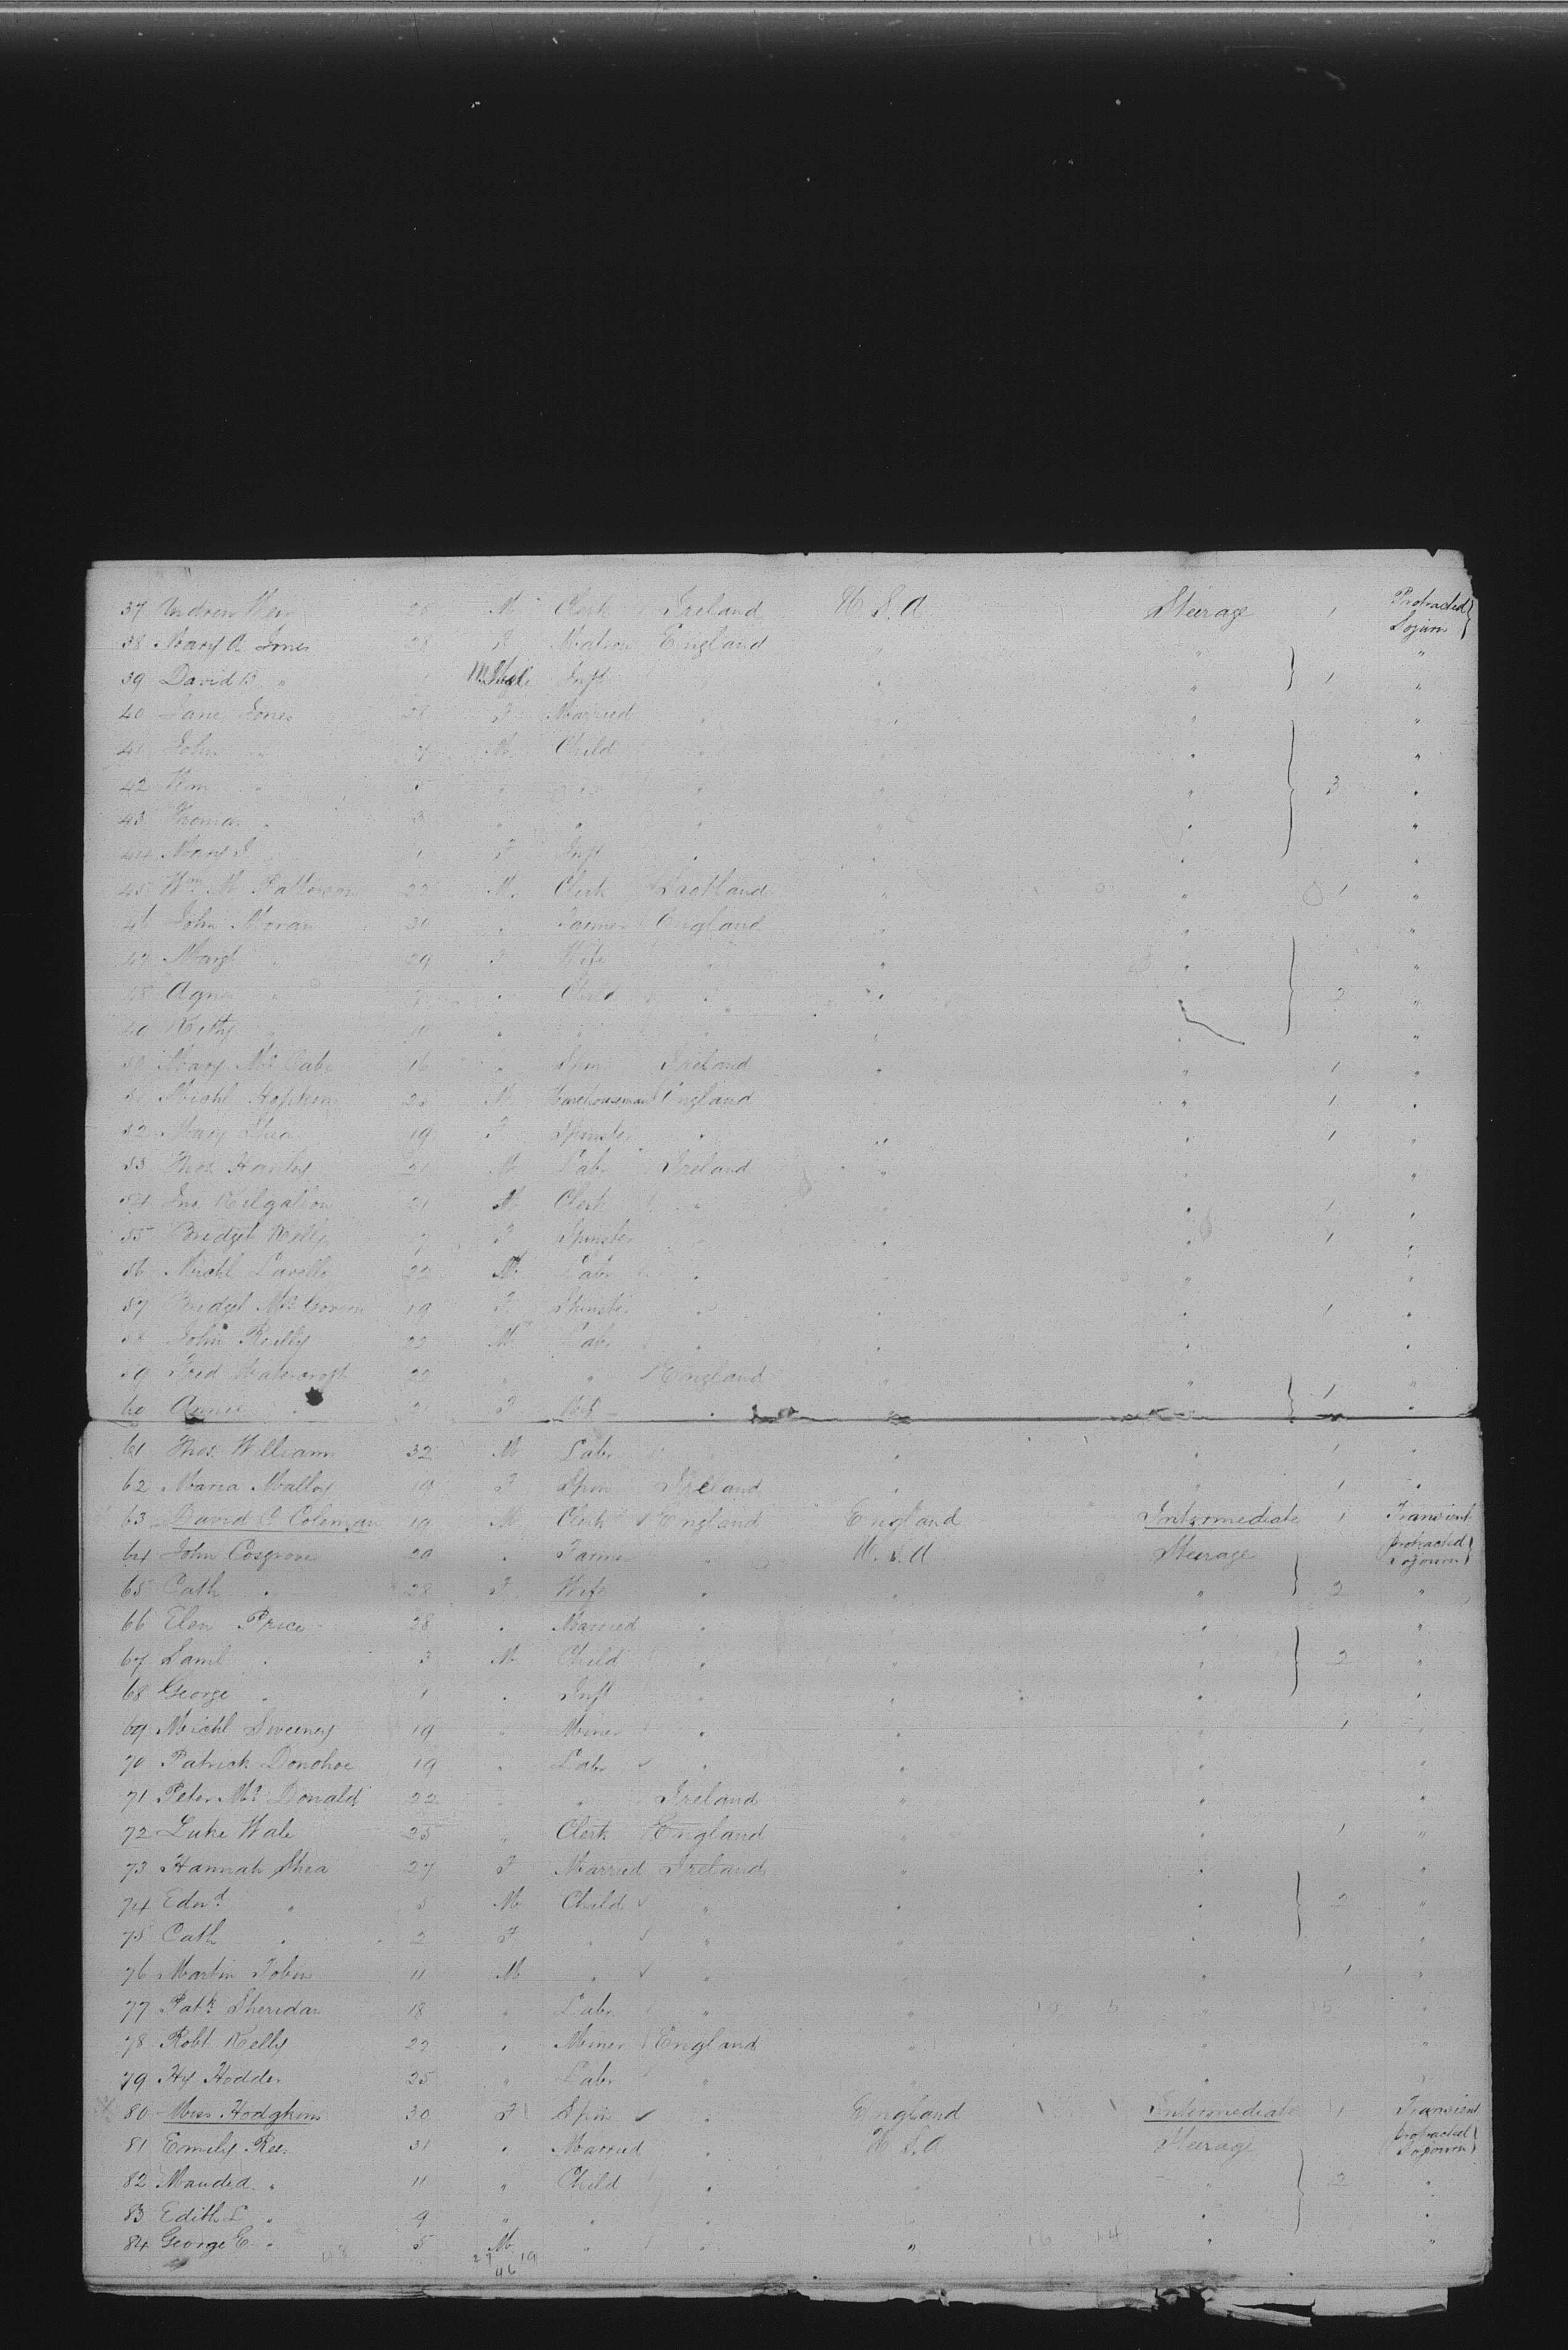 37 Andrew Weir 26 M Clerk Ireland U.S.A Steerage 1 Protracted Sojurn }
38 Mary A. Jones 28 F Matron England " " "
39 David B " 1 M Male Inft " " 1 "
40 Jane Jones 28 F Married " " " "
41 John " 7 M Child " " "
42 Wm " 5 " " " " " 3 "
43 Thomas " 3 " " " " " "
44 Mary J 1 F Inft " " "
45 Wm M Patterson 22 M. Clerk Scotland " " 1 "
46 John Moran 31 " Farmer England " " "
47 Margt " 29 F Wife " " " "
48 Agnes " " Child " " " 2 "
49 Kitty " " " " " "
50 Mary McCabe 16 " Spin Ireland " " 1 "
51 Michl Hopkins M Warehouseman England " " 1 "
52 Mary Shea 19 F Spinster " " " 1 "
53 Thos Hanley 21 M Labr Ireland " " "
54 Jno. Kilgallon 21 M Clerk " " 1 "
55 Bridget Kelly F Spinster " " 1 "
56 Michl Lavelle 22 M Labr " " "
57 Bridget McGovern 19 F Spinster " " " 1 "
58 John Reilly 22 M Labr " " " "
59 Fred 22 " " England " " "
60 Annie " 21 F Wf " 1 "
61 Thos. Williams 32 M Labr " " 1 "
62 Maria Malloy 19 F Spin Ireland " " 1 "
63 David C Coleman 19 M Clerk England England Intermediate 1 Transient
64 John Cosgrove 29 " Farmr " U.S.A Steerage protracted Sojourn }
65 Cath " 28 F Wife " " " 2 "
66 Elen Price 28 " Married " " "
67 Saml " 3 M Child " " 2 "
68 George " 1 " Inft " " " "
69 Michl Sweeney 19 " Miner " " " 1 "
70 Patrick Donohoe 19 " Labr " " " "
71 Peter McDonald 22 " " Ireland " " "
72 Luke Wale 25 " Clerk England " " 1 "
73 Hannah Shea 27 F Married Ireland " "
74 Edwd " 5 M Child " " " 2 "
75 Cath " 2 F " " " " "
76 Martin Tobin 11 M " " " " 1 "
77 Patk Sheridan 18 " Labr " " 10 5 " 5 "
78 Robt Kelly 22 " Miner England " " "
79 Hy Hodder 25 " Labr " " "
80 Miss Hodgkins 30 F Spin " England Intermediate 1 Transient
81 Emily Ree 31 " Married " U.S.A Steerage protracted Sojourn }
82 Maude A. " 11 " Child " " " 2 "
83 Edith L " 9 " " " " " "
84 George E. " 5 M " " " 16 14 " "
48 27 19
46